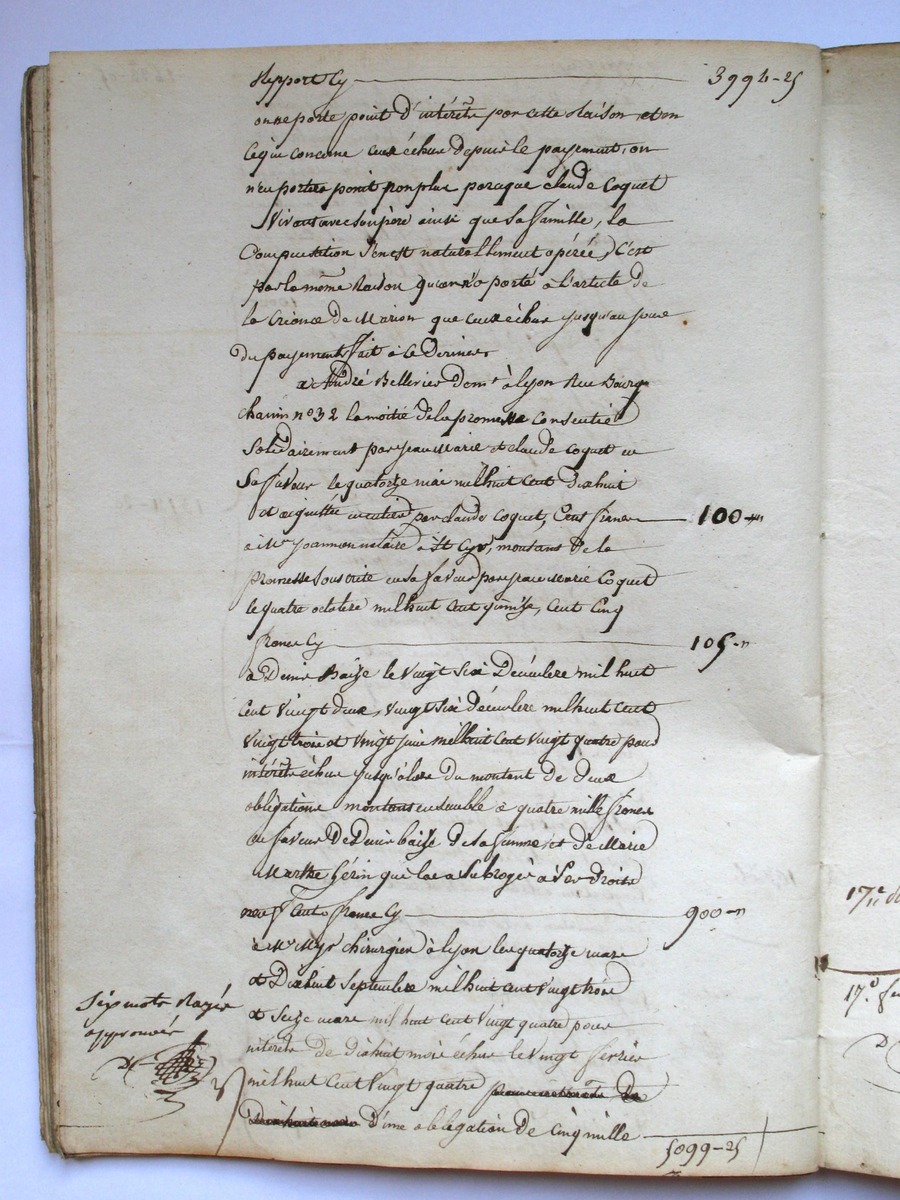 Report Cy 3994-25
on ne porte point d'intérêts par cette Raison, et en
ce qui concerne ceux échus depuis le payement, on
n'en portera point non plus parce que claude Coquet
vivant avec son père ainsi que sa famille, la
Compensation s'en est naturellement opérée, C'est
par la même Raison qu'on n'a porté à l'article de
la Créance de Marion que ceux échus jusqu'au jour
du payement fait à ce Dernier
a André Bellevier dem.t à Lyon Rue Bourg
chanin n.o 32 la moitié de la promesse Consentie
Solidairement par jean Marie et claude Coquet en
Sa faveur le quatorze mai mil huit Cent dix huit
et acquittée en entier par claude Coquet, Cent francs 100-"
à M.r joannon notaire à St Cyr, montant de la
promesse souscrite en sa faveur par jean Marie Coquet
le quatre octobre mil huit Cent quinze, Cent Cinq
francs Cy 105-"
à Denis Baize le vingt Six Décembre mil huit
Cent vingt deux, vingt Six décembre mil huit Cent
vingt trois et vingt juin mil huit Cent vingt quatre pour
intérêts échus jusqu'alors du montant de deux
obligations montant ensemble à quatre mille francs
en faveur De Denis baize De sa femme, et de Marie
Marthe qui les a Subrogés à Ses Droits
neuf Cents francs Cy 900-"
à M.r chirurgien à Lyon les quatorze mars
et Dix huit Septembre mil huit Cent vingt trois
et Seize mars mil huit Cent vingt quatre pour
intérêts de dix huit mois échus le vingt février
mil huit Cent vingt quatre
D'une obligation de Cinq mille
5099-25
Six mots Rayés
approuvés
17.e
17.o